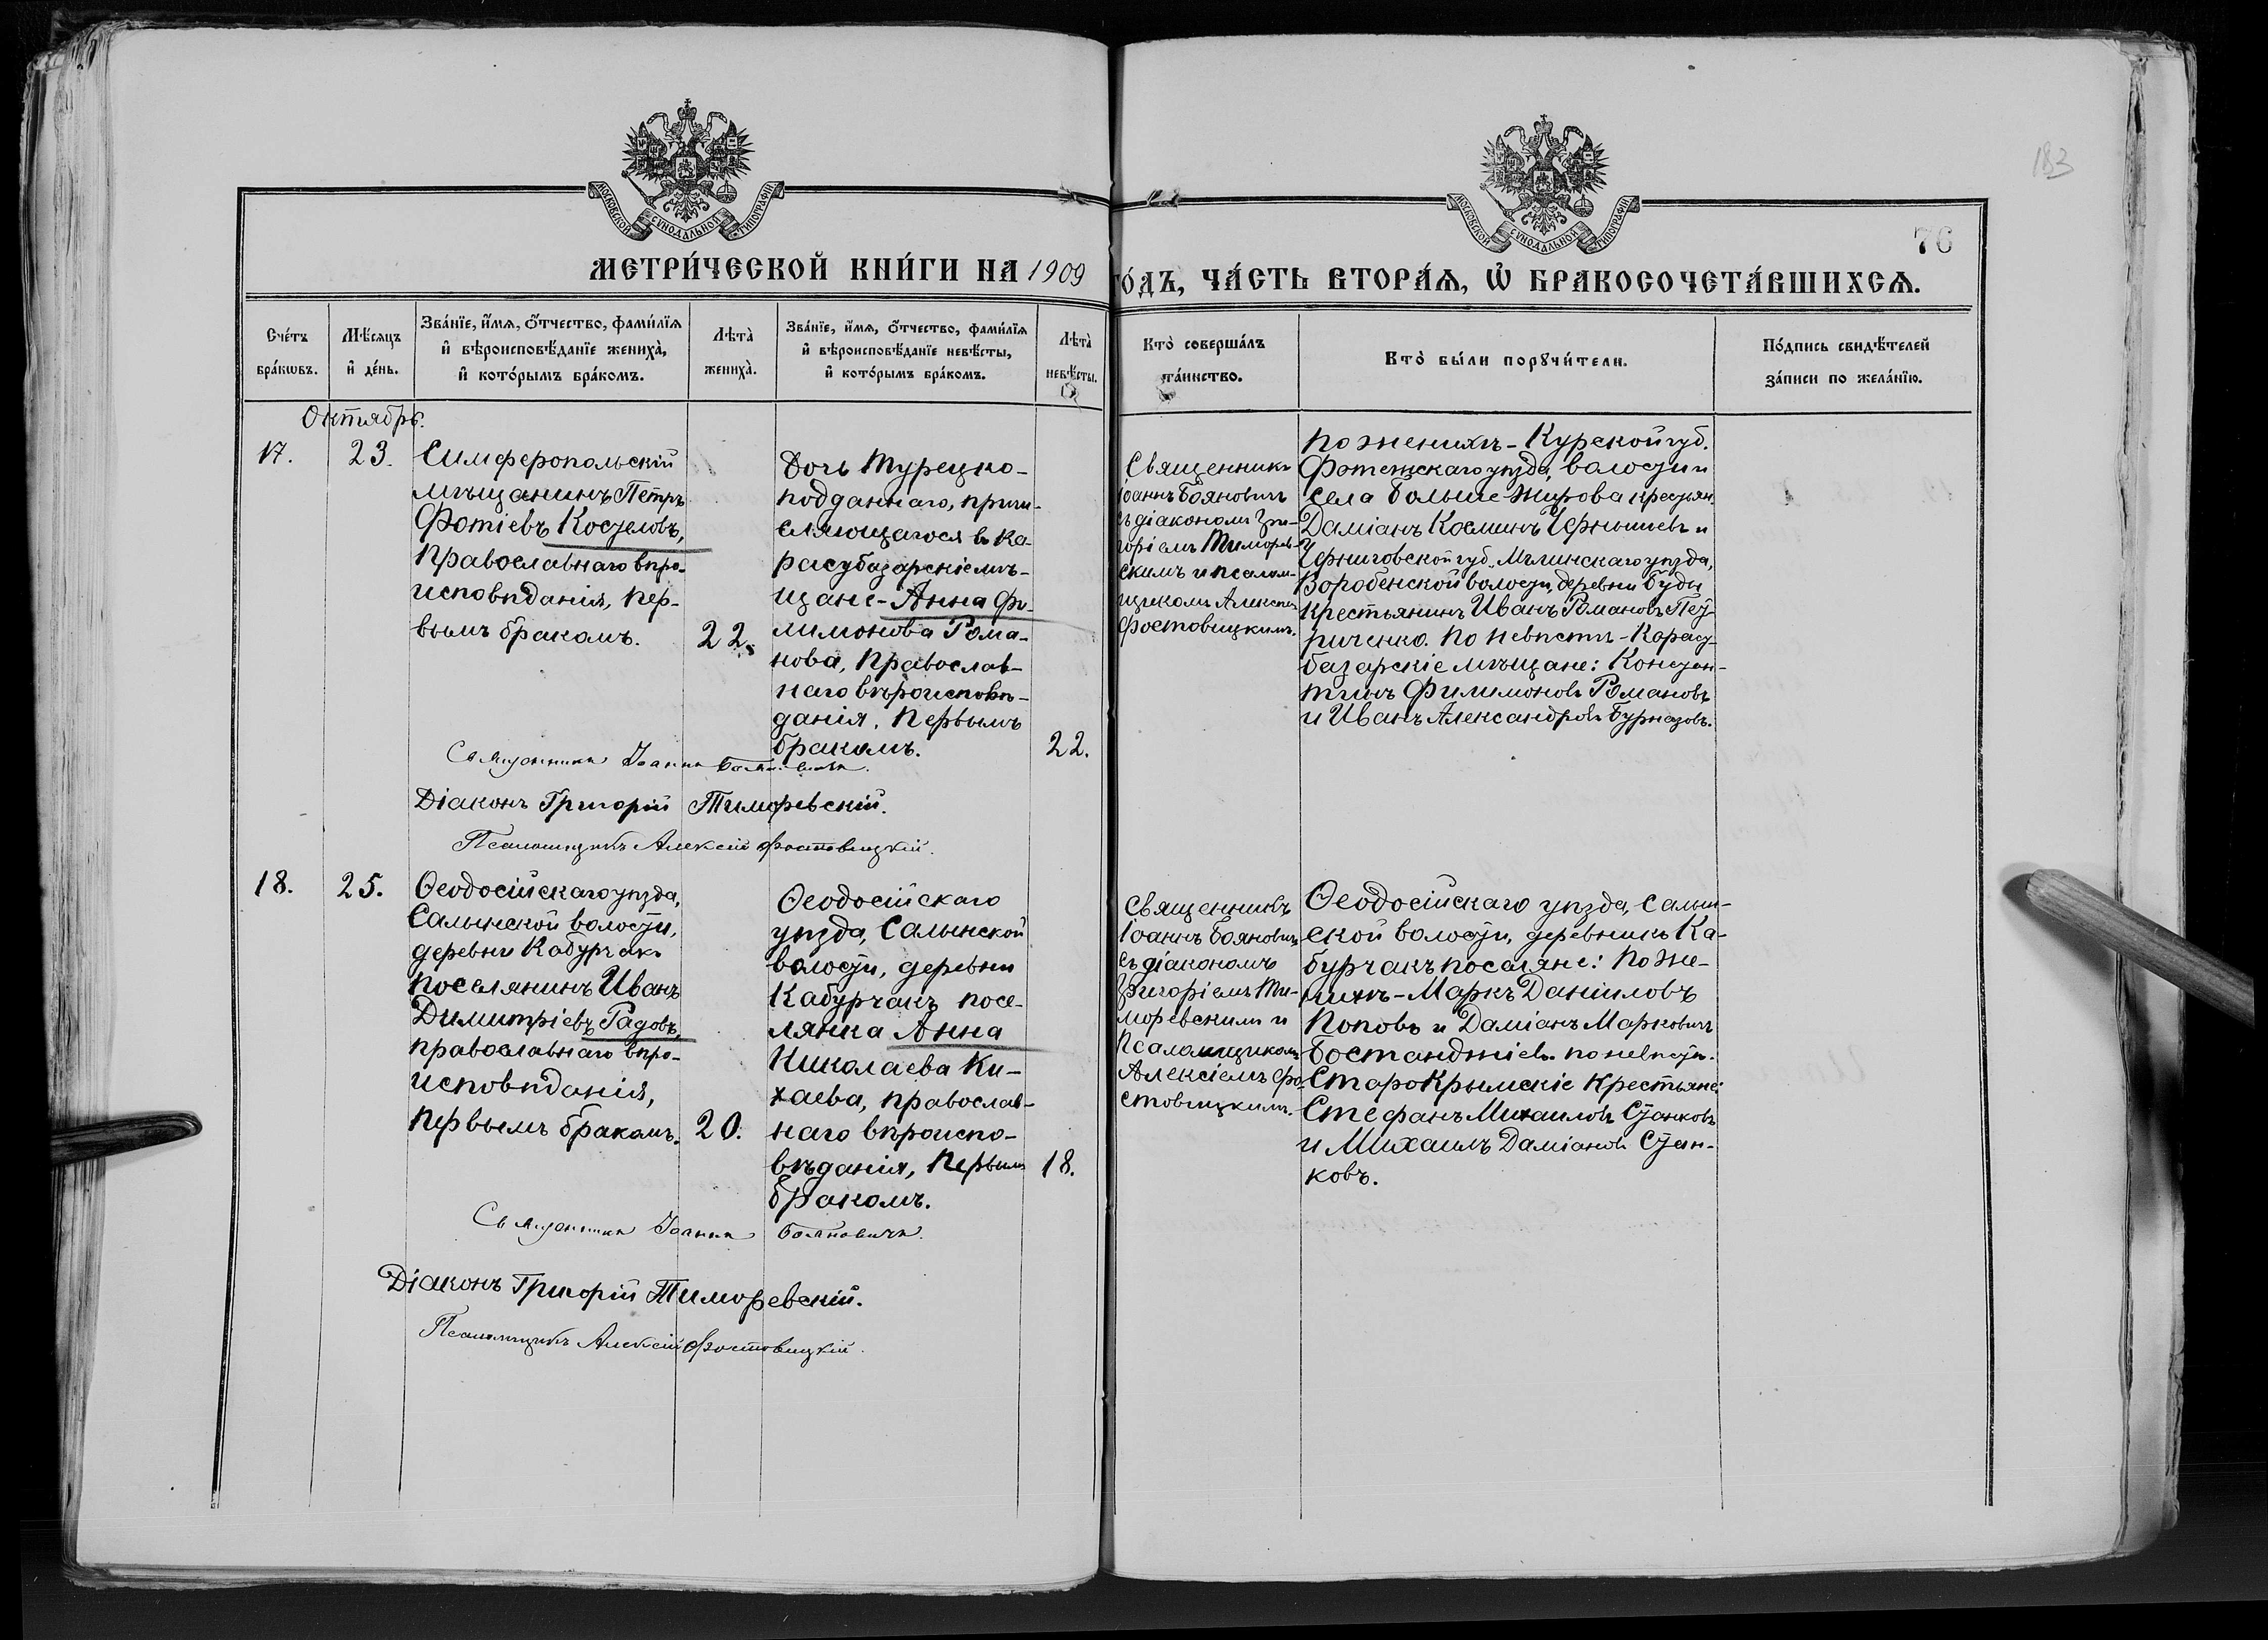 183
76
МОСКОВСКОЙ СѴНОДАЛЬНОЙ ТИПОГРАФІИ
МОСКОВСКОЙ СѴНОДАЛЬНОЙ ТИПОГРАФІИ
МЕТРИ́ЧЕСКОЙ КНИ́ГИ НА 1909 ГО́ДЪ, ЧА́СТЬ ВТОРА́Я, Ѡ҆ БРАКОСОЧЕТА́ВШИХСѦ.
Сче́тъ
бра́кѡвъ.
Мѣ́сяцъ
и҆ де́нь.
Зва́нїе, и҆́мѧ, ѻ҆́тчество, фами́лїѧ
и҆ вѣроисповѣ́данїе жениха̀,
и҆ кото́рымъ бра́комъ.
Лѣта̀
жениха̀.
Зва́нїе, и҆́мѧ, ѻ҆́тчество, фами́лїѧ
и҆ вѣроисповѣ́данїе невѣ́сты,
и҆ кото́рымъ бра́комъ.
Лѣта̀
невѣ́сты.
Кто̀ соверша́лъ
та́инство.
Кто̀ бы́ли порꙋчи́тели.
По́дпись свидѣ́телей
за́писи по жела́нїю.
Октябрь.
17.
23.
Симферопольскій
мѣщанинъ Петръ
Фотіевъ Костеловъ,
православнаго вѣро-
исповѣданія, пер-
вымъ бракомъ.
22.
Дочь Турецко-
подданнаго, причи-
сляющагося въ Ка-
расубазарскіе мѣ-
щане - Анна Фи-
лимонова Рома-
нова, православ-
наго вѣроисповѣ-
данія, первымъ
бракомъ.
22.
Священникъ
Іоаннъ Бояновичъ
съ діакономъ Гри-
горіемъ Тиморев-
скимъ и псалом-
щикомъ Алексіемъ
Фостовицкимъ.
По женихѣ - Курской губ.
Фатежскаго уѣзда, волости и
села Больше Жирова крестьян.
Даміанъ Косминъ Чернышевъ и
Черниговской губ. Мглинскаго уѣзда,
Воробенской волости, деревни Буды
крестьянинъ Иванъ Романовъ Пет-
риченко. По невѣстѣ - Карасу-
базарскіе мѣщане: Констан-
тинъ Филимоновъ Романовъ
и Иванъ Александровъ Бурназовъ.
Священникъ Іоаннъ Бояновичъ.
Діаконъ Григорій Тиморевскій.
Псаломщикъ Алексій Фостовицкій.
18.
25.
Ѳеодосійскаго уѣзда,
Салынской волости,
деревни Кабурчакъ
поселянинъ Иванъ
Димитріевъ Радовъ,
православнаго вѣро-
исповѣданія,
первымъ бракомъ.
20.
Ѳеодосійскаго
уѣзда, Салынской
волости, деревни
Кабурчакъ посе-
лянка Анна
Николаева Ки-
хаева, православ-
наго вѣроиспо-
вѣданія, первымъ
бракомъ.
18.
Священникъ
Іоаннъ Бояновичъ
съ діакономъ
Григоріемъ Ти-
моревскимъ и
псаломщикомъ
Алексіемъ Фо-
стовицкимъ.
Ѳеодосійскаго уѣзда, Салын-
ской волости, деревни Ка-
бурчакъ поселяне: По же-
нихѣ - Маркъ Даніиловъ
Поповъ и Даміанъ Марковичъ
Бостанджіевъ. по невѣстѣ.
Старокрымскіе крестьяне:
Стефанъ Михаиловъ Станковъ
и Михаилъ Даміановъ Стан-
ковъ.
Священникъ Іоаннъ Бояновичъ.
Діаконъ Григорій Тиморевскій.
Псаломщикъ Алексій Фостовицкій.